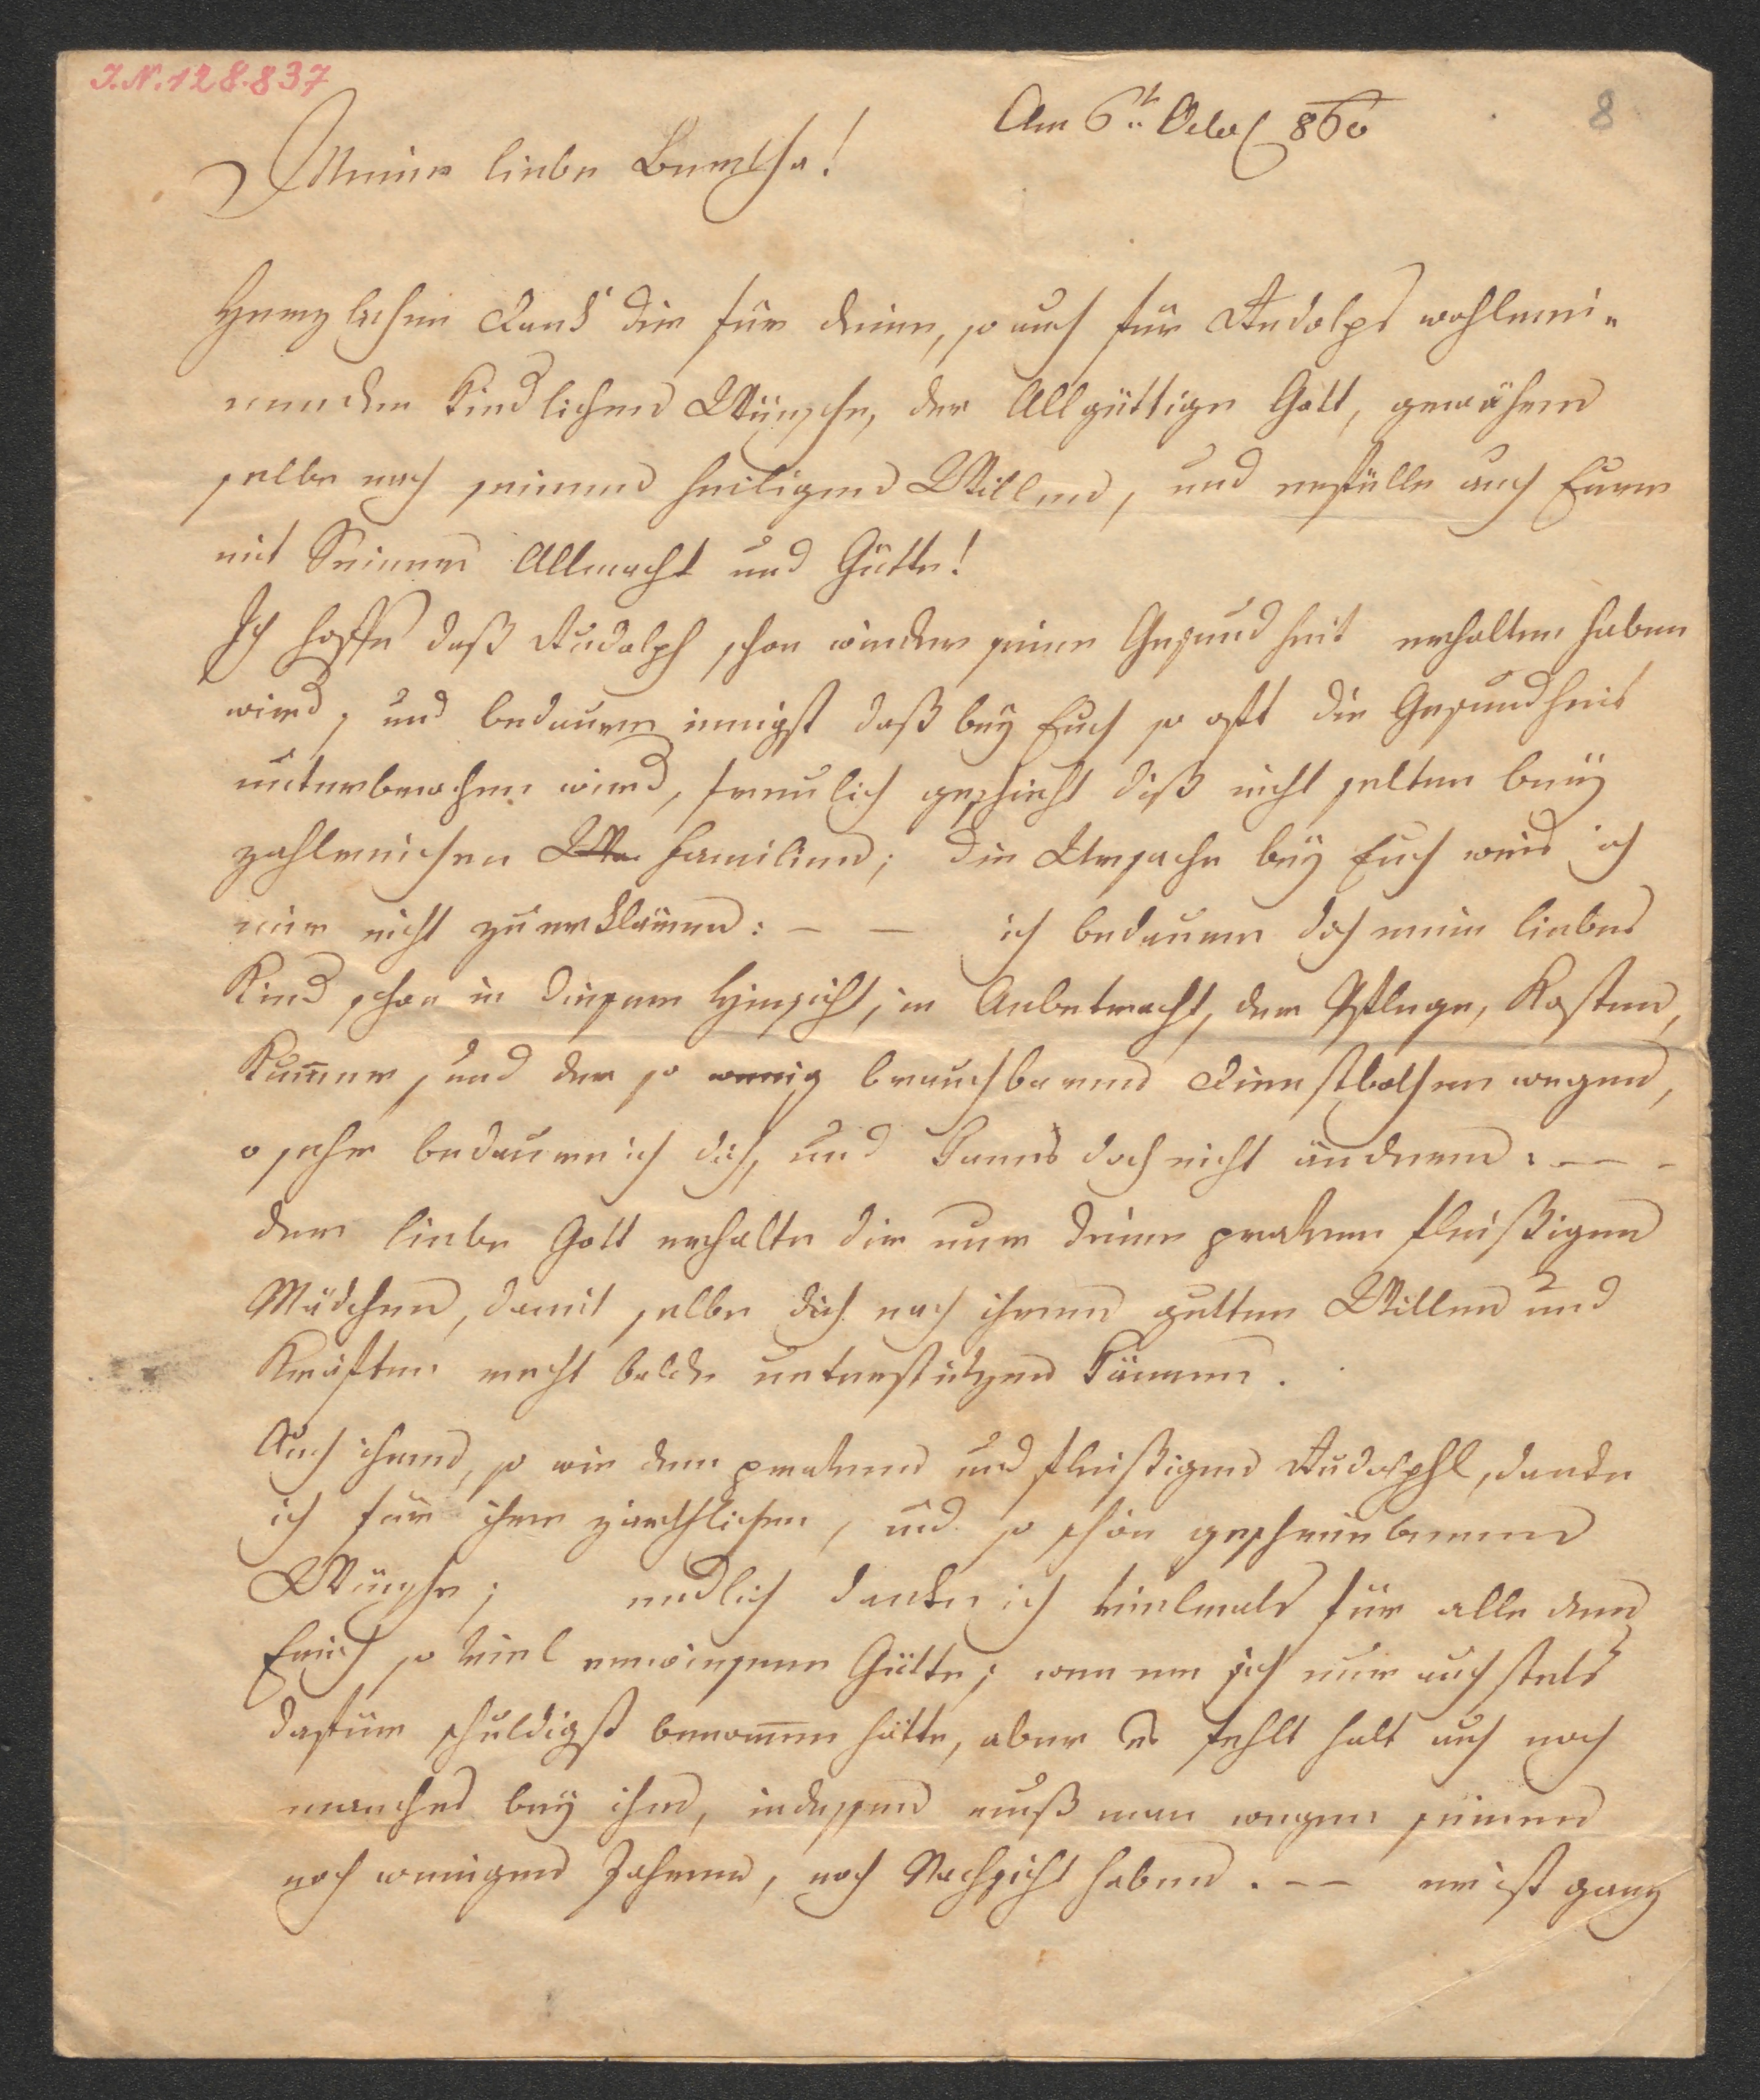 I.N. 128.837
8
Am 6t. Octob 860
Meine liebe Bertha!
Herzlichen Dank dir für deine, so auch für Rudolps wohlmei„
nenden kindlichen Wünsche, der Allgüttige Gott, gewähren
selbe nach seinem heiligen Willen, und erfülle auch Eure
mit Seiner Allmacht und Gütte!
Ich hoffe daß Rudolph schon wieder seine Gesundheit erhalten haben
wird, und bedaure innigst daß beÿ Euch so oft die Gesundheit
unterbrochen wird, freulich geschieht diß nicht selten beÿ
zahlreichen Familien; die Ursache beÿ Euch weis ich
mir nicht zu erklären: – – ich bedaure dich mein liebes
Kind schon in dieser Hinsicht, in Anbetracht, der Pflege, Kosten,
Kum̅er, und der so wenig brauchbaren Dienstbothen wegen,
o sehr bedaure ich dich, und kanns doch nicht ändern: – – –
der liebe Gott erhalte dir nur deine braven fleißigen
Mädchen, damit selbe dich nach ihren gutten Willen und
Kräften recht balde unterstützen können.
Auch ihnen, so wie dem braven und fleißigen Rudolphl, danke
ich für ihre zärthlichen, und so schön geschriebenen
Wünsche; endlich danke ich vielmals für alle dem
Erich so viel erwiesene Gütte; wenn er sich nur auch stets
dafür schuldigst benom̅en hätte, aber es fehlt halt auch noch
manches beÿ ihm, indessen muß man wegen seinen
noch wenigen Jahren, noch Nachsicht haben. – – er ist ganz